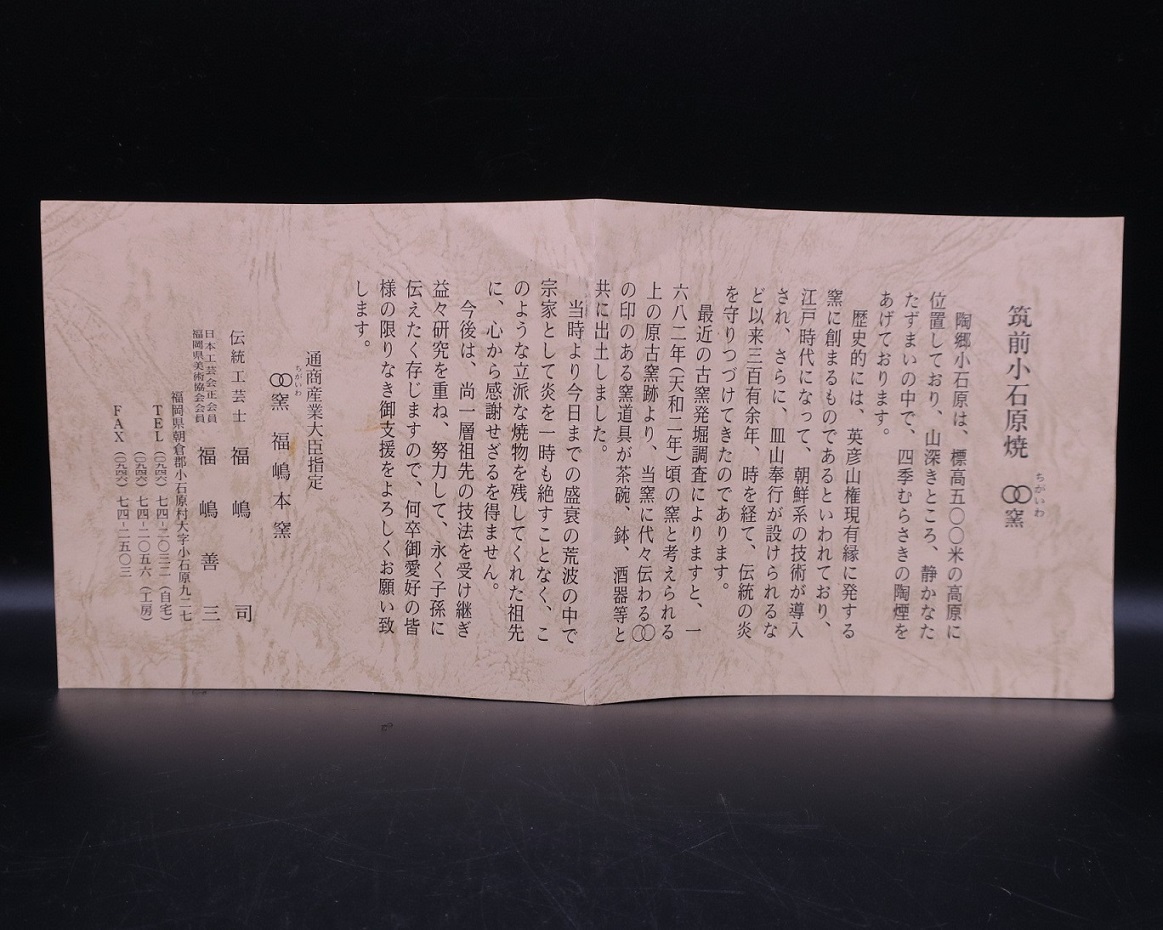 筑前小石原焼 ◯◯窯
ちがいわ
陶郷小石原は、標高五〇〇米の高原に
位置しており、山深きところ、静かなた
たずまいの中で、四季むらさきの陶煙を
あげております。
歴史的には、英彦山権現有縁に発する
窯に創まるものであるといわれており、
江戸時代になって、朝鮮系の技術が導入
され、さらに、皿山奉行が設けられるな
ど以来三百有余年、時を経て、伝統の炎
を守りつづけてきたのであります。
最近の古窯発掘調査によりますと、一
六八二年(天和二年)頃の窯と考えられる
上の原古窯跡より、当窯に代々伝わる◯◯
の印のある窯道具が茶碗、鉢、酒器等と
共に出土しました。
当時より今日までの盛衰の荒波の中で
宗家として炎を一時も絶すことなく、こ
のような立派な焼物を残してくれた祖先
に、心から感謝せざるを得ません。
今後は、尚一層祖先の技法を受け継ぎ
益々研究を重ね、努力して、永く子孫に
伝えたく存じますので、何卒御愛好の皆
様の限りなき御支援をよろしくお願い致
します。
通商産業大臣指定
ちがいわ
◯◯窯 福嶋本窯
伝統工芸士 福嶋 司
日本工芸会正会員
福岡県美術協会会員
福嶋善三
福岡県朝倉郡小石原村大字小石原九二七
TEL(〇九四六)七四-二〇三二(自宅)
(〇九四六)七四-二〇五六(工房)
FAX(〇九四六)七四-二五〇三